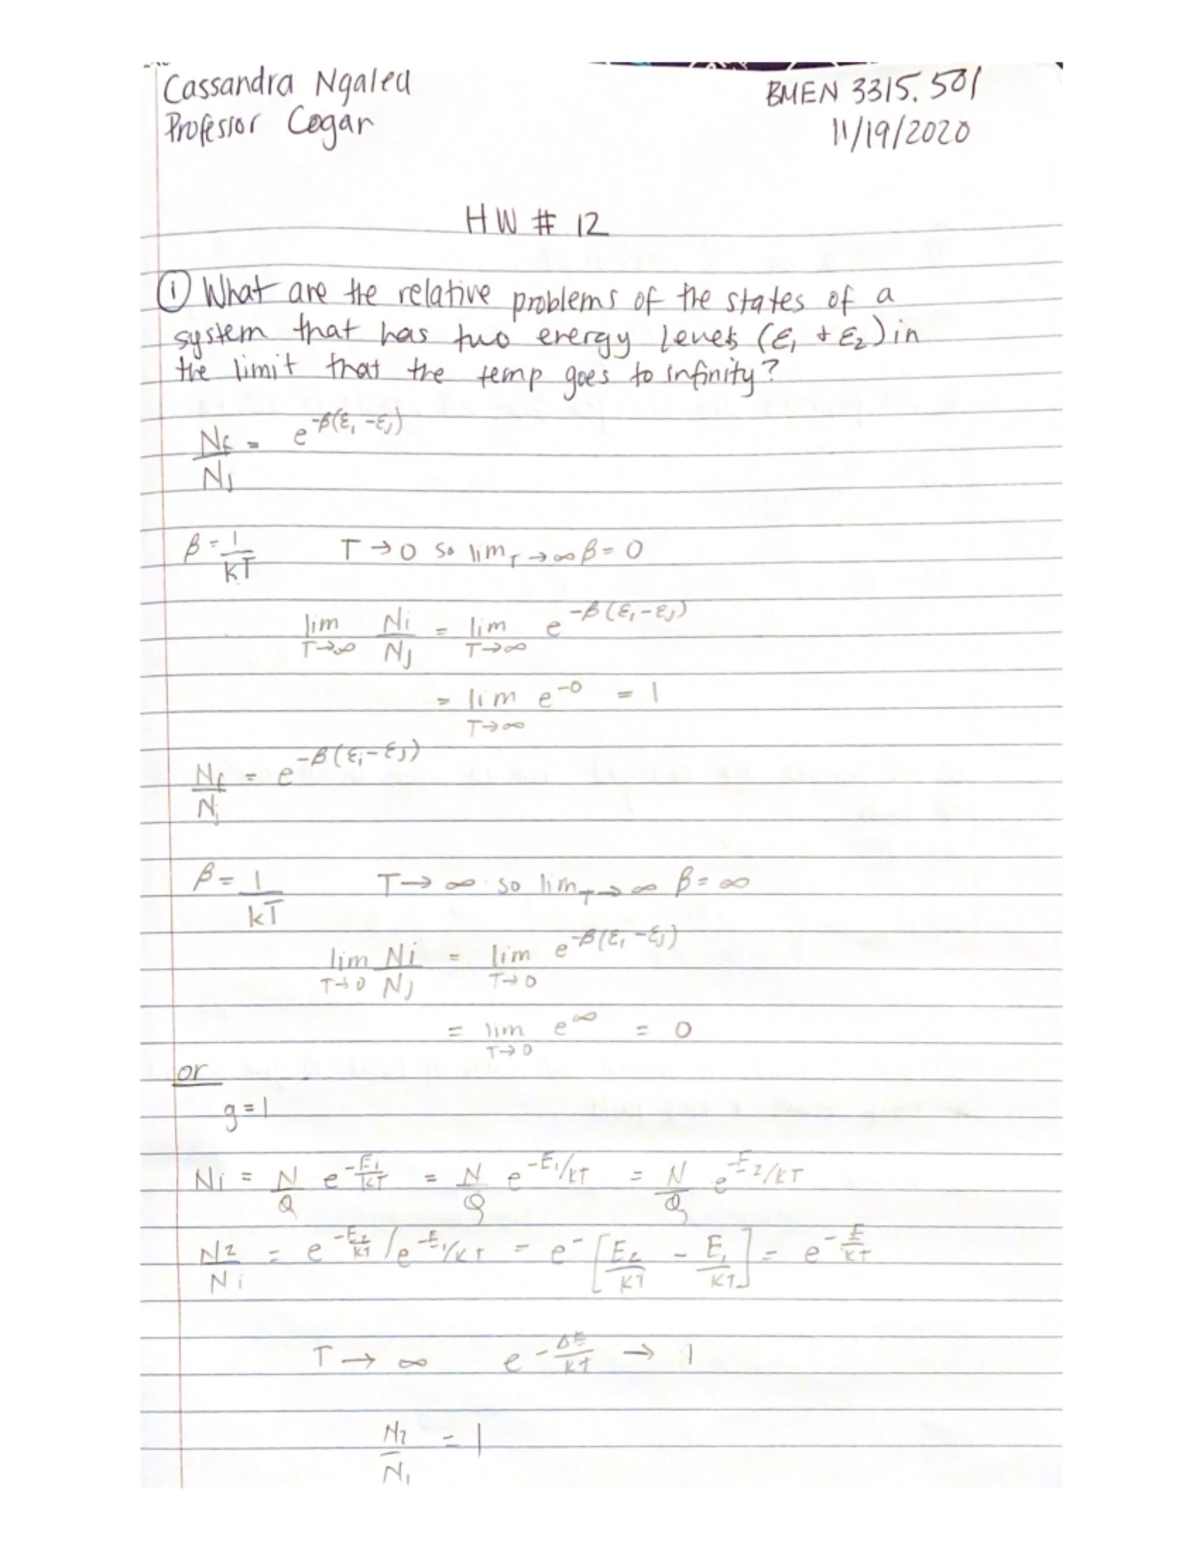 Cassandra Ngaleu
BMEN 3315.501
Professor Cogar
11/19/2020
HW # 12
① What are the relative problems of the states of a
system that has two energy levels (ε₁ + ε₂) in
the limit that the temp goes to infinity?
Nf/Nj = e^-β(ε₁ -εj)
β = 1/kT T → 0 so lim T→∞ β = 0
lim T→∞ Ni/Nj = lim T→∞ e^-β(ε₁-εj)
= lim T→∞ e^-0 = 1
Nf/Nj = e^-β(εi-εj)
β = 1/kT T → ∞ so lim T→∞ β = ∞
lim T→0 Ni/Nj = lim T→0 e^-β(ε₁-εj)
= lim T→0 e^∞ = 0
or
g = 1
Ni = N/Q e^-E₁/kT = N/Q e^-E₁/kT = N/Q e^-E2/kT
N2/Ni = e^-E2/kT / e^-E₁/kT = e^-[E2/kT - E₁/kT] = e^-E/kT
T → ∞ e^-ΔE/kT → 1
N2/N₁ = 1